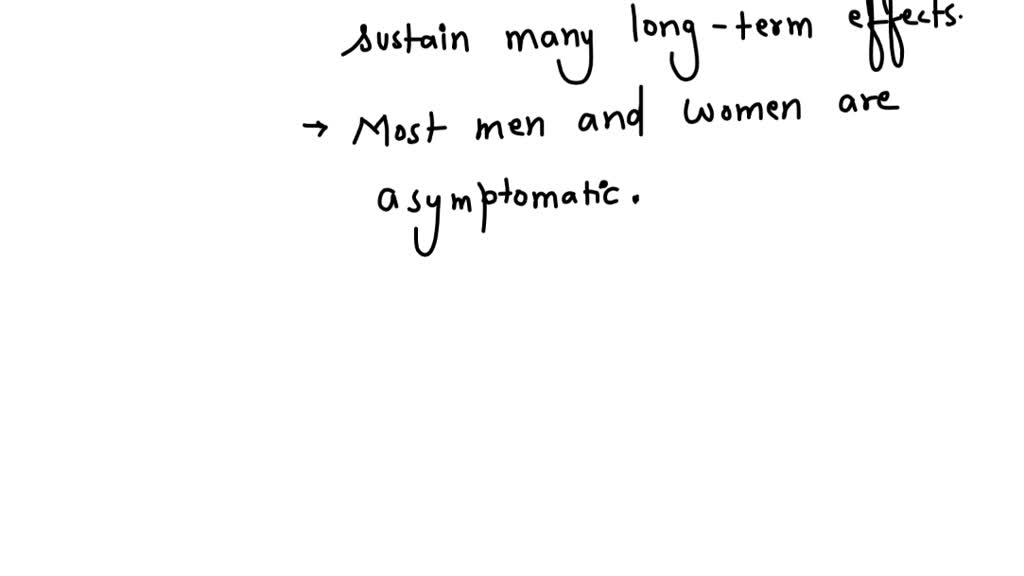 sustain many long-term effects.
→ Most men and women are
asymptomatic.